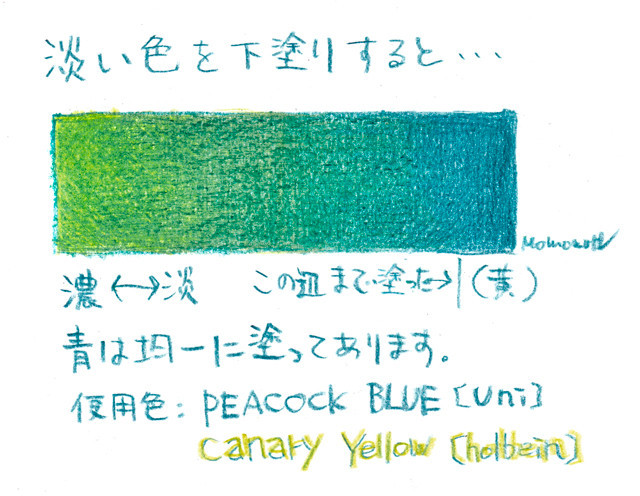 淡い色を下塗りすると・・・
濃←→淡 この辺まで塗った→|(黄)
青は均一に塗ってあります。
使用色: PEACOCK BLUE [uni]
canary Yellow [holbein]